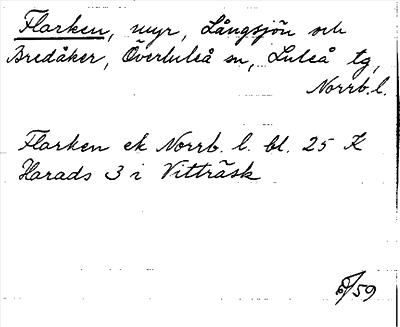 Flarken, myr, Långsjön och
Bredåker, Överluleå sn, Luleå tg,
Norrb. l.
Flarken ek Norrb. l. bl. 25 K
Harads 3 i Vitträsk
/59